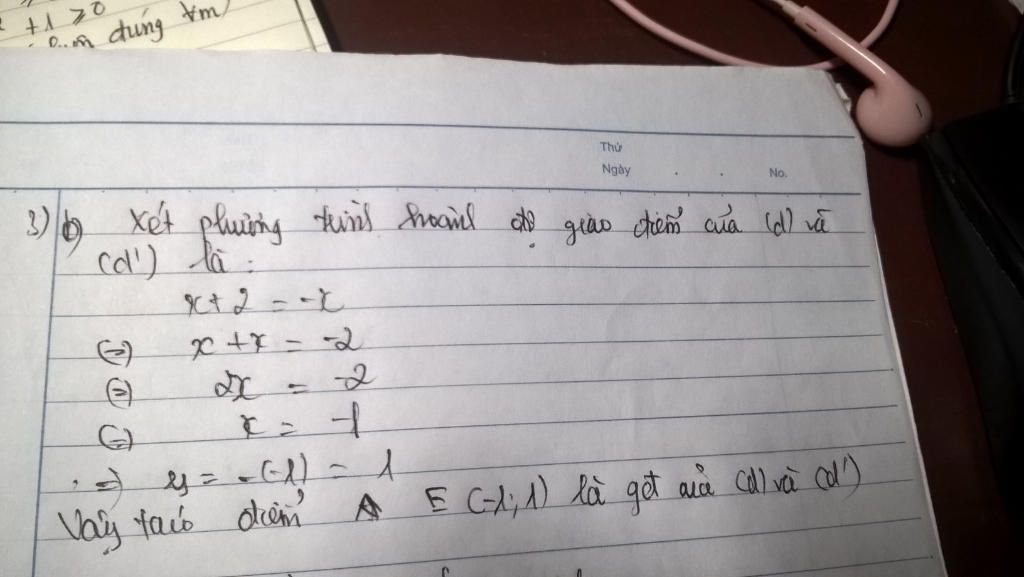 +1 ≥ 0
đúng ∀m
Thứ
Ngày . . No.
3) b) Xét phương trình hoành độ giao điểm của (d) và
(d') là :
x + 2 = -x
(=) x + x = -2
(=) 2x = -2
(=) x = -1
=) y = -(-1) = 1
Vậy điểm A E (-1; 1) là gđ của (d) và (d')